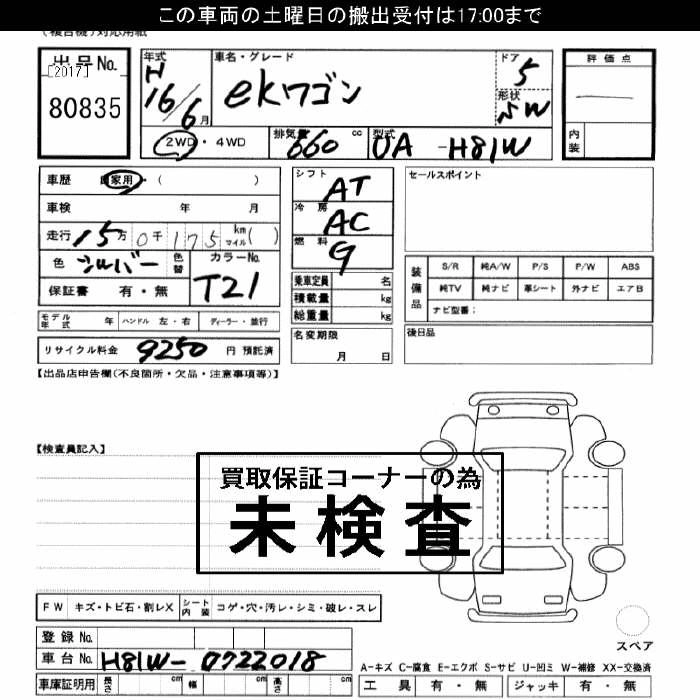 この車両の土曜日の搬出受付は17:00まで
(複合機)対応用紙
出品No.
[2017]
80835
年式
H
16/6月
車名・グレード
ekワゴン
ドア
5
形状
SW
2WD・4WD
排気量
660 cc
型式
UA -H81W
評価点
内装
車歴 自家用・( )
車検 年 月
走行 15万0千175 km マイル( )
色 シルバー 色替
カラーNo.
T21
保証書 有・無
モデル年式 年 ハンドル 左・右 ディーラー・並行
リサイクル料金 9250 円 預託済
シフト
AT
冷房
AC
燃料
G
乗車定員 名
積載量 kg
総重量 kg
名変期限
月 日
セールスポイント
装備品
S/R 純A/W P/S P/W ABS
純TV 純ナビ 革シート 外ナビ エアB
ナビ型番:
後日品
【出品店申告欄(不良箇所・欠品・注意事項等)】
【検査員記入】
買取保証コーナーの為
未検査
FW キズ・トビ石・割レX シート内装 コゲ・穴・汚レ・シミ・破レ・スレ
登録No.
車台No. H81W-0722018
車庫証明用 長さ cm 幅 cm 高さ cm
スペア
A-キズ C-腐食 E-エクボ S-サビ U-凹ミ W-補修 XX-交換済
工具 有・無 ジャッキ 有・無